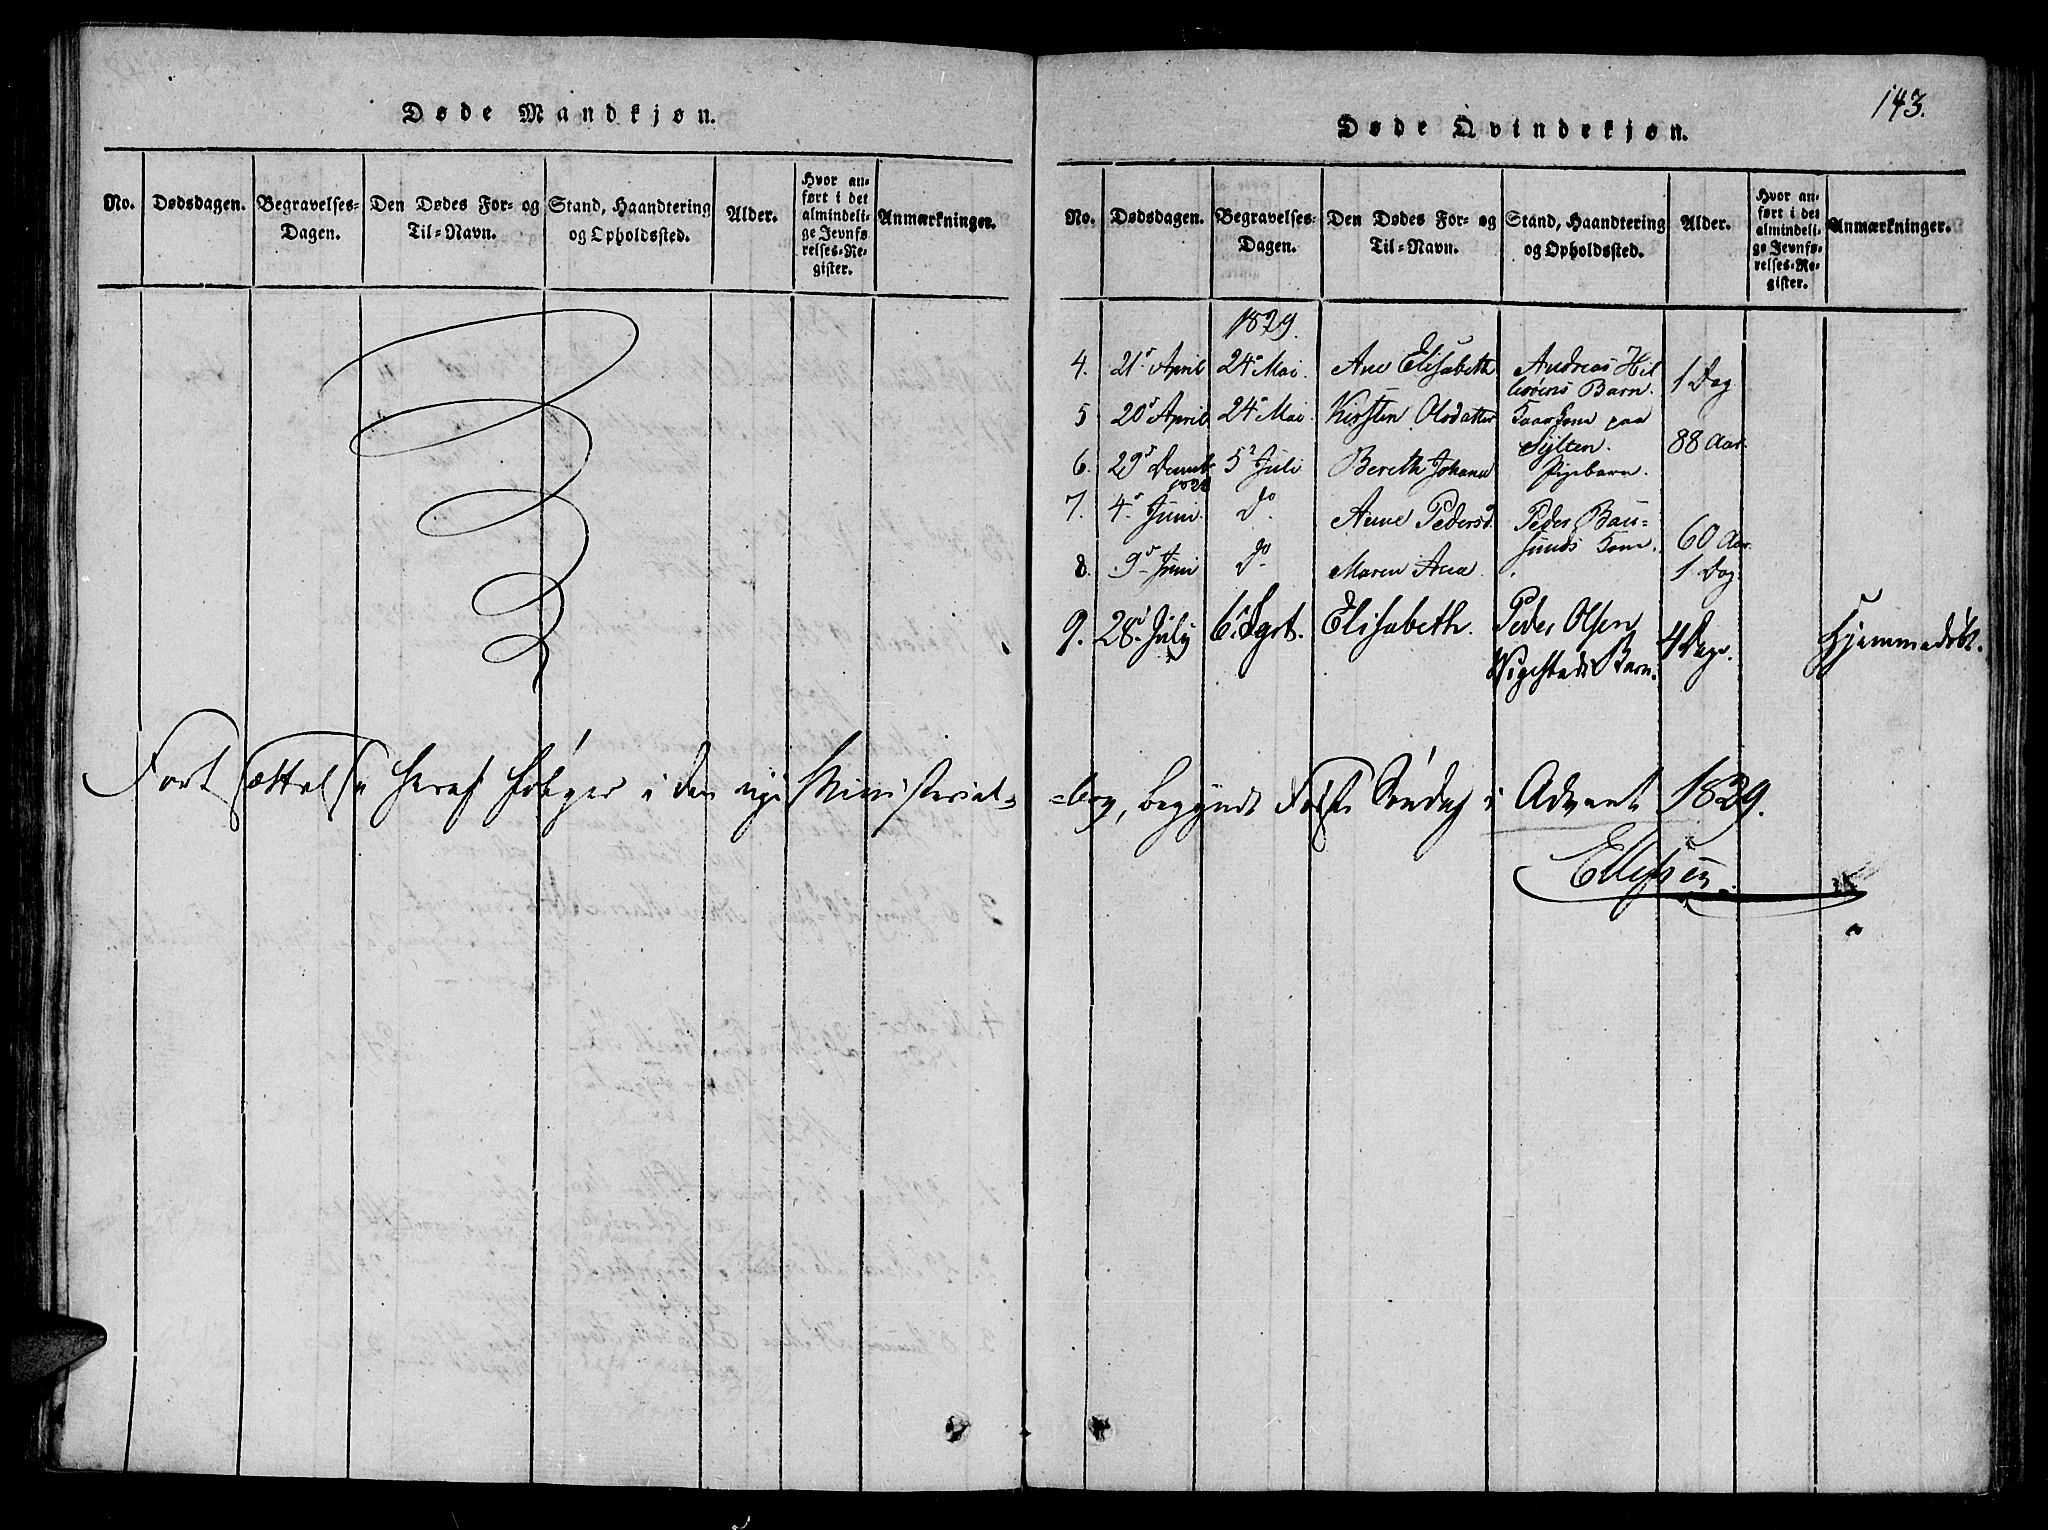 Døde Mandkjøn.
No. Dødsdagen. Begravelses-Dagen. Den Dødes For- og Til-Navn. Stand, Haandtering og Opholdssted. Alder. Hvor anført i det almindelige Jevnførelses-Register. Anmærkninger.
143.
Døde Qvindekjøn.
No. Dødsdagen. Begravelses-Dagen. Den Dødes For- og Til-Navn. Stand, Haandtering og Opholdssted. Alder. Hvor anført i det almindelige Jevnførelses-Register. Anmærkninger.
1829.
4. 21 April 24 Mai. Ane Elisabeth Andreas Hil
lerøens Barn. 1 Dag
5 20 April 24 Mai. Kirsten Olsdatter Kaarkone paa
Sylten. 88 Aar.
6. 29 Decembr 1828 5 Juli Bereth Johana Pigebarn.
7. 4 Juni. do Anne Pedersd. Peder Bau=
sunds Kone. 60 Aar.
8. 9 Juni do Maren Ana. 1 Dag.
9. 28 July 6 Sept. Elisabeth. Peder Olsen
Barn. 4 Dage. Hjemmedøbt.
Fortsættelse heraf følger i den nye Ministerial=
=bog, begyndt Første Søndag i Advent 1829.
Ellefsen